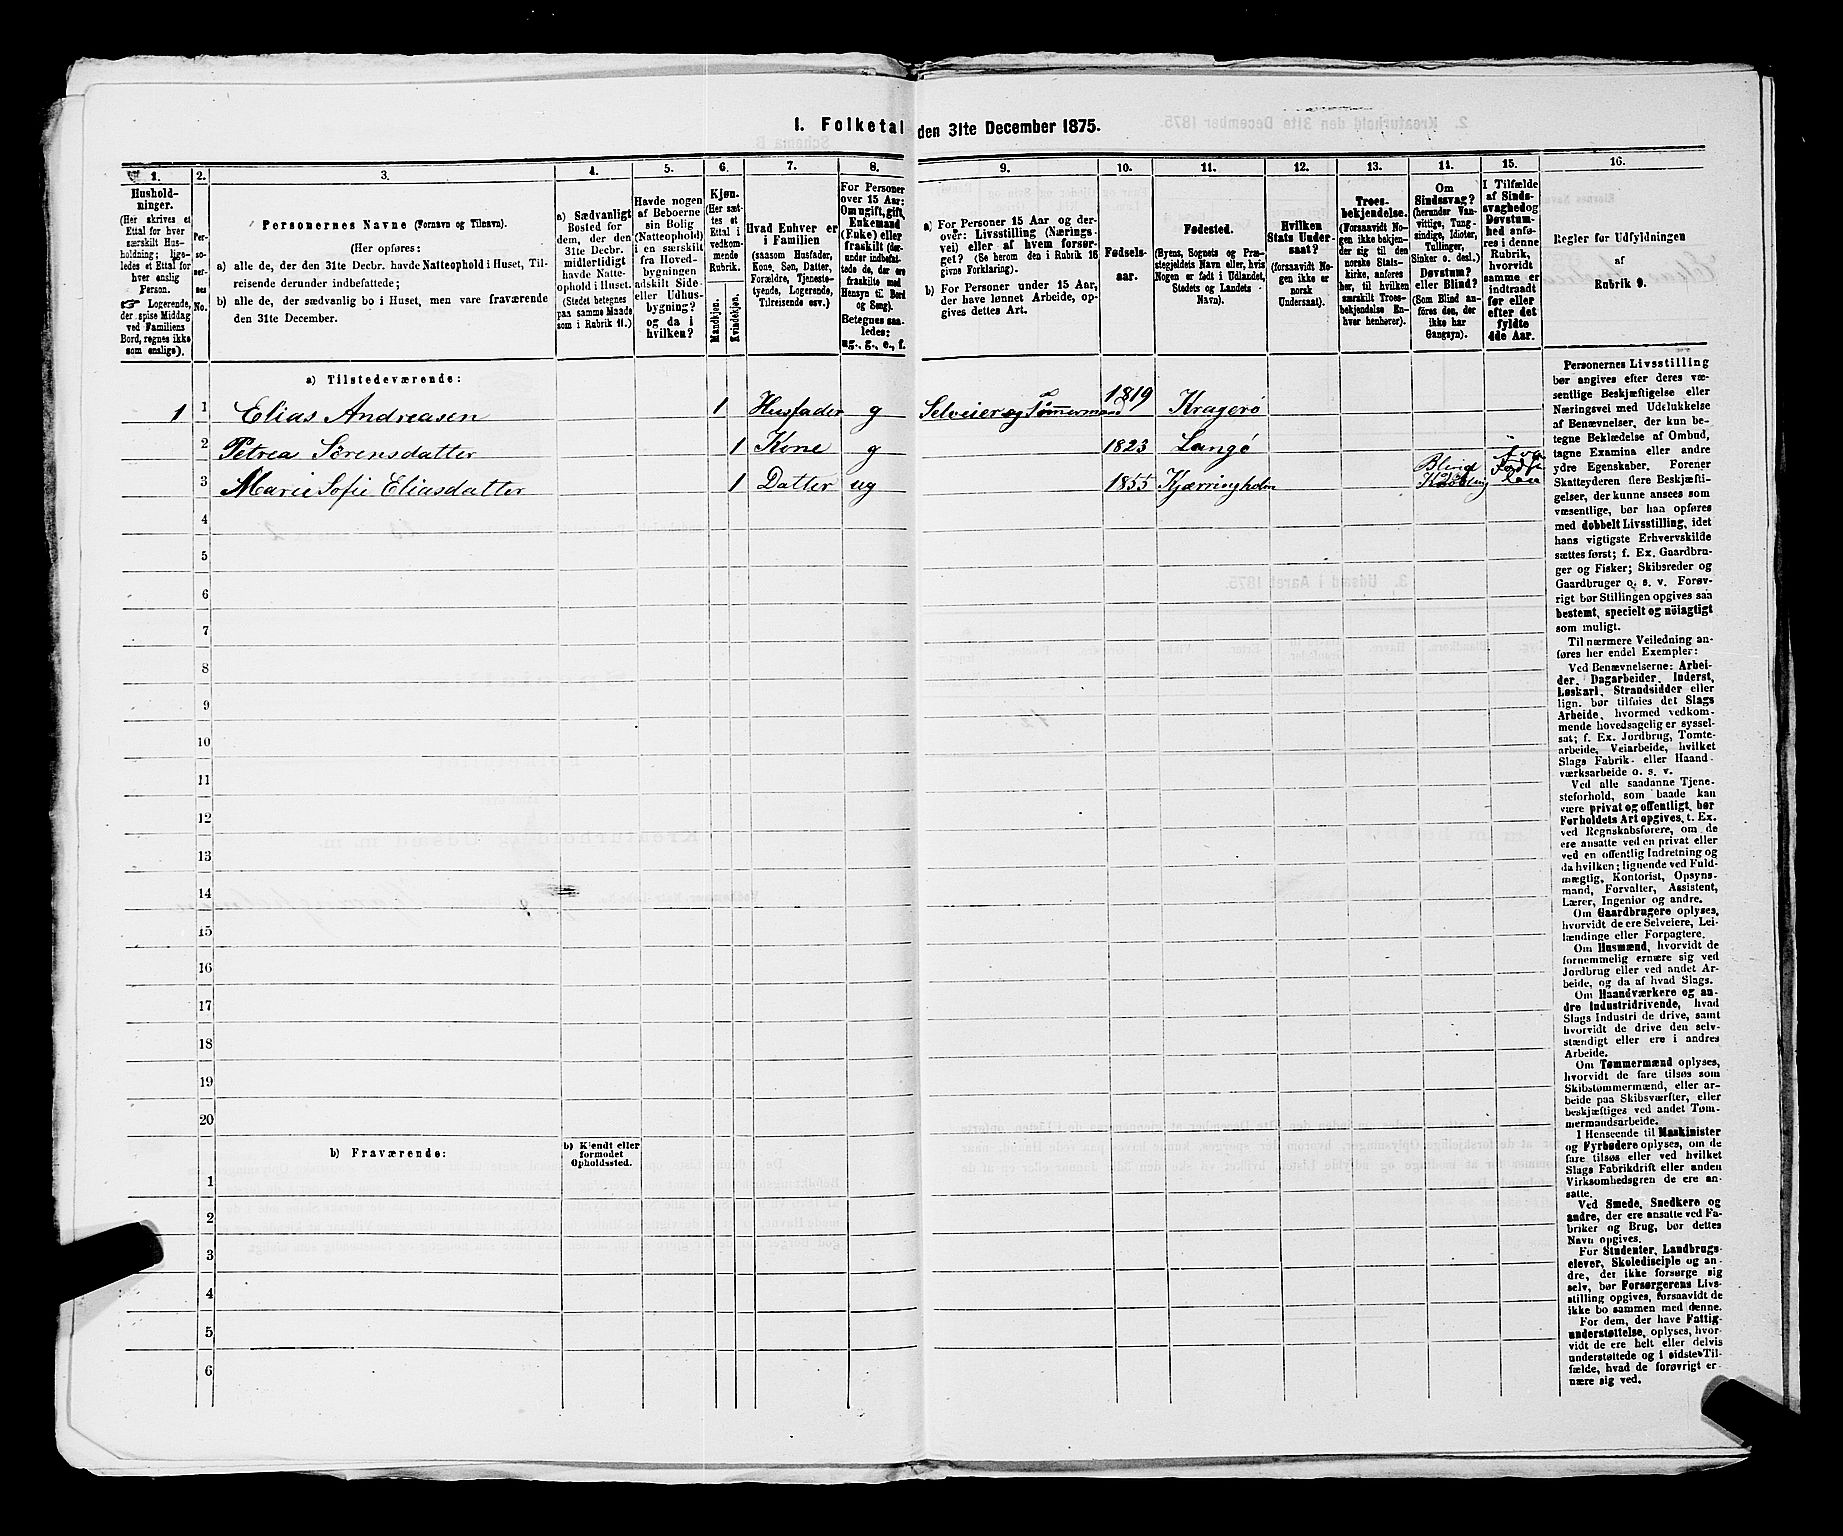 I. Folketal den 31te December 1875.
1. 2. 3. 4. 5. 6. 7. 8. 9. 10. 11. 12. 13. 14. 15. 16.
Hushold-
ninger.
(Her skrives et
Ettal for hver
særskilt Hus-
holdning; lige-
ledes et Ettal for
hver enslig
Person.
☞ Logerende,
der spise Middag
ved Familiens
Bord, regnes ikke
som enslige).
Per-
soner-
nes
No.
Personernes Navne (Fornavn og Tilnavn).
(Her opføres:
a) alle de, der den 31te Decbr. havde Natteophold i Huset, Til-
reisende derunder indbefattede;
b) alle de, der sædvanlig bo i Huset, men vare fraværende
den 31te December.
a) Sædvanligt
Bosted for
dem, der den
31te Decbr.
midlertidigt
havde Natte-
ophold i Huset.
(Stedet betegnes
paa samme Maade
som i Rubrik 11.)
Havde nogen
af Beboerne
sin Bolig
(Natteophold)
i en særskilt
fra Hoved-
bygningen
adskilt Side-
eller Udhus-
bygning?
og da i
hvilken?
Kjøn.
(Her sæt-
tes et
Ettal i
vedkom-
mende
Rubrik.
Mandkjøn.
Kvindekjøn.
Hvad Enhver er
i Familien
(saasom Husfader,
Kone, Søn, Datter,
Forældre, Tjeneste-
tyende, Logerende,
Tilreisende osv.)
For Personer
over 15 Aar:
Om ugift, gift,
Enkemand
(Enke) eller
fraskilt (der-
under indbefat-
tede de, der ere
fraskilte med
Hensyn til Bord
og Seng).
Betegnes saa-
ledes:
ug., g., e., f.
a) For Personer 15 Aar og der-
over: Livsstilling (Nærings-
vei) eller af hvem forsør-
get? (Se herom den i Rubrik 16
givne Forklaring).
b) For Personer under 15 Aar,
der have lønnet Arbeide, op-
gives dettes Art.
Fødsels-
aar.
Fødested.
(Byens, Sognets og Præ-
stegjeldets Navn eller, hvis
Nogen er født i Udlandet,
Stedets og Landets
Navn).
Hvilken
Stats Under-
saat?
(forsaavidt No-
gen ikke er
norsk
Undersaat).
Troes-
bekjendelse.
(Forsaavidt No-
gen ikke bekjen-
der sig til den
norske Stats-
kirke, anføres
her, til hvilken
særskilt Troes-
bekjendelse En-
hver henhører).
Om
Sindssvag?
(herunder Van-
vittige, Tung-
sindige, Idioter,
Tullinger,
Sinker o. desl.)
Døvstum?
eller Blind?
(Som Blind an-
føres den, der
ikke har
Gangsyn).
I Tilfælde
af Sinds-
svaghed og
Døvstum-
hed anfø-
res i denne
Rubrik,
hvorvidt
samme er
indtraadt
før eller
efter det
fyldte
4de Aar.
Regler for Udfyldningen
af
Rubrik 9.
a) Tilstedeværende:
1 1 Elias Andreasen 1 Husfader g Selveier og Tømmermand 1819 Kragerø
2 Petrea Sørensdatter 1 Kone g 1823 Langø
3 Marie Sofie Eliasdatter 1 Datter ug 1855 Kjærringholm Blind
4
5
6
7
8
9
10
11
12
13
14
15
16
17
18
19
20
b) Fraværende:
b) Kjendt eller
formodet
Opholdssted.
1
2
3
4
5
6
Personernes Livsstilling
bør angives efter deres væ-
sentlige Beskjæftigelse eller
Næringsvei med Udelukkelse
af Benævnelser, der kun be-
tegne Beklædelse af Ombud,
tagne Examina eller andre
ydre Egenskaber. Forener
Skatteyderen flere Beskjæfti-
gelser, der kunne ansees som
væsentlige, bør han opføres
med dobbelt Livsstilling, idet
hans vigtigste Erhvervskilde
sættes først; f. Ex. Gaardbru-
ger og Fisker; Skibsreder og
Gaardbruger o. s. v. Forøv-
rigt bør Stillingen opgives saa
bestemt, specielt og nöiagtigt
som muligt.
Til nærmere Veiledning an-
føres her endel Exempler:
Ved Benævnelserne: Arbei-
der, Dagarbeider, Inderst,
Løskarl, Strandsidder eller
lign. bør tilføies det Slags
Arbeide, hvormed vedkom-
mende hovedsagelig er syssel-
sat; f. Ex. Jordbrug, Tomte-
arbeide, Veiarbeide, hvilket
Slags Fabrik- eller Haand-
værksarbeide o. s. v.
Ved alle saadanne Tjene-
steforhold, som baade kan
være privat og offentligt, bør
Forholdets Art opgives, t. Ex.
ved Regnskabsførere, om de
ere ansatte ved en privat eller
ved en offentlig Indretning og
da hvilken; lignende ved Fuld-
mægtig, Kontorist, Opsyns-
mand, Forvalter, Assistent,
Lærer, Ingeniør og andre.
Om Gaardbrugere oplyses,
hvorvidt de ere Selveiere, Lei-
lændinge eller Forpagtere.
Om Husmænd, hvorvidt de
fornemmelig ernære sig ved
Jordbrug eller ved andet Ar-
beide, og da af hvad Slags.
Om Haandværkere og an-
dre Industridrivende, hvad
Slags Industri de drive, samt
hvorvidt de drive den selv-
stændigt eller ere i andres
Arbeide.
Om Tømmermænd oplyses,
hvorvidt de fare tilsøs som
Skibstømmermænd, eller ar-
beide paa Skibsværfter, eller
beskjæftiges ved andet Tøm-
mermandsarbeide.
I Henseende til Maskinister
og Fyrbødere oplyses, om de
fare tilsøs eller ved hvilket
Slags Fabrikdrift eller anden
Virksomhedsgren de ere an-
satte.
Ved Smede, Snedkere og
andre, der ere ansatte ved Fa-
briker og Brug, bør dettes
Navn opgives.
For Studenter, Landbrugs-
elever, Skoledisciple og an-
dre, der ikke forsørge sig
selv, bør Forsørgerens Livs-
stilling opgives, forsaavidt de
ikke bo sammen med denne.
For dem, der have Fattig-
understøttelse, oplyses, hvor-
vidt de ere helt eller delvis
understøttede og i sidste Til-
fælde, hvad de forøvrigt er-
nære sig ved.